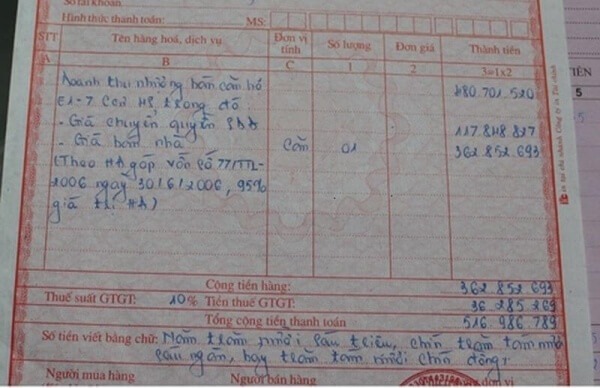 Số tài khoản:
Hình thức thanh toán: MS:
STT Tên hàng hoá, dịch vụ Đơn vị tính Số lượng Đơn giá Thành tiền
A B C 1 2 3=1x2
Doanh thu nhượng bán căn hộ 480.701.520
E1-7 trong đó
- Giá chuyển quyền SDĐ 117.848.827
- Giá bán nhà Căn 01 362.852.693
(Theo HĐ góp vốn số 77/TTL-
2006 ngày 30/6/2006, 95%
giá trị HĐ)
Cộng tiền hàng: 362 852 693
Thuế suất GTGT: 10% Tiền thuế GTGT: 36 285 269
Tổng cộng tiền thanh toán 516 986 789
Số tiền viết bằng chữ: Năm trăm mười sáu triệu, chín trăm tám mươi
sáu ngàn, bảy trăm tám mươi chín đồng
Người mua hàng Người bán hàng
TIÊN
5